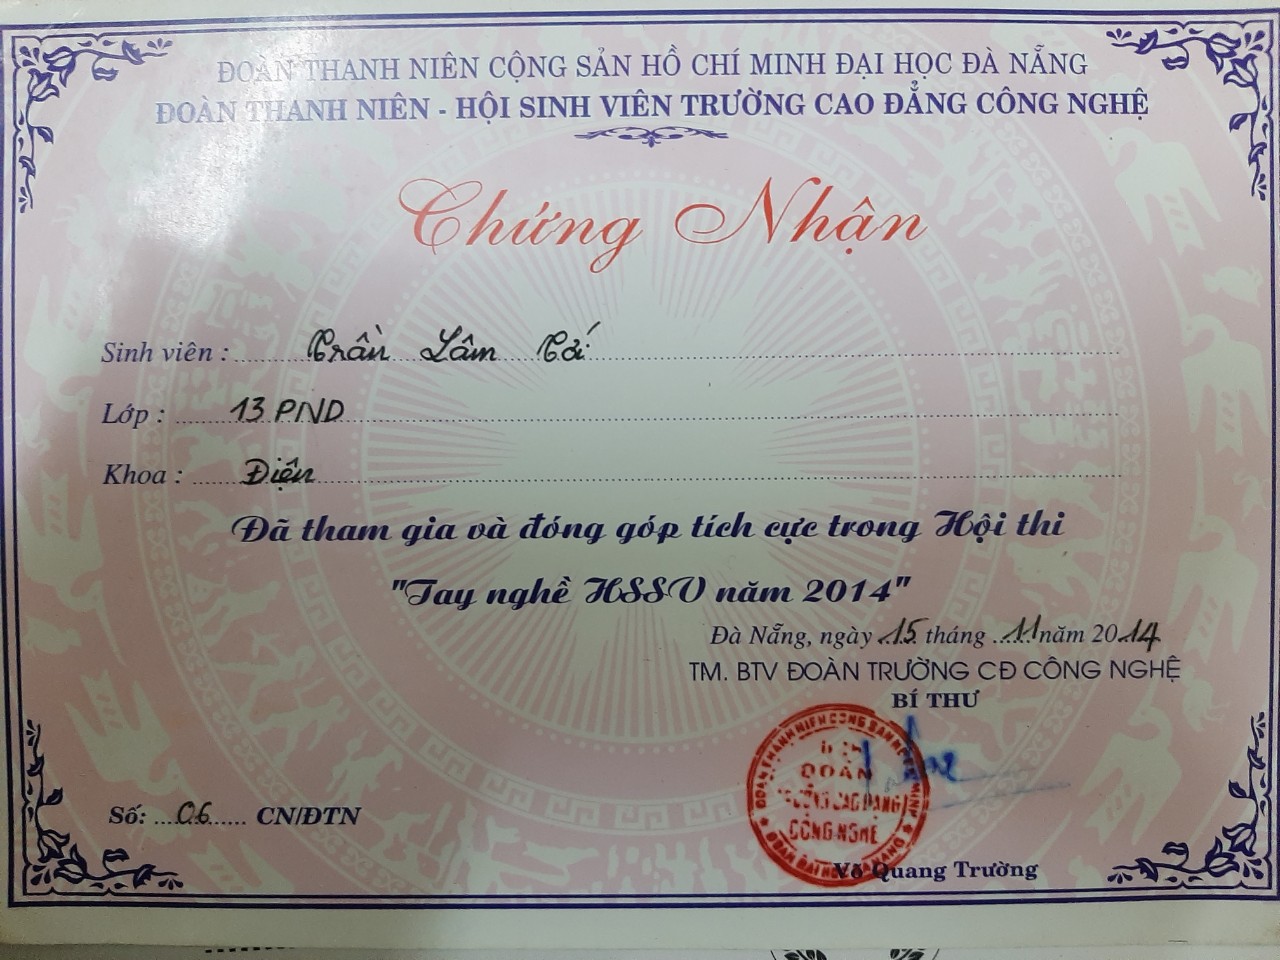 ĐOÀN THANH NIÊN CỘNG SẢN HỒ CHÍ MINH ĐẠI HỌC ĐÀ NẴNG
ĐOÀN THANH NIÊN - HỘI SINH VIÊN TRƯỜNG CAO ĐẲNG CÔNG NGHỆ
Chứng Nhận
Sinh viên : Trần Lâm Tới
Lớp : 13 PND
Khoa : Điện
Đã tham gia và đóng góp tích cực trong Hội thi
"Tay nghề HSSV năm 2014"
Đà Nẵng, ngày 15 tháng 11 năm 2014
TM. BTV ĐOÀN TRƯỜNG CĐ CÔNG NGHỆ
BÍ THƯ
ĐOÀN
TRƯỜNG CAO ĐẲNG
CÔNG NGHỆ
Số: 06 CN/ĐTN
Võ Quang Trường